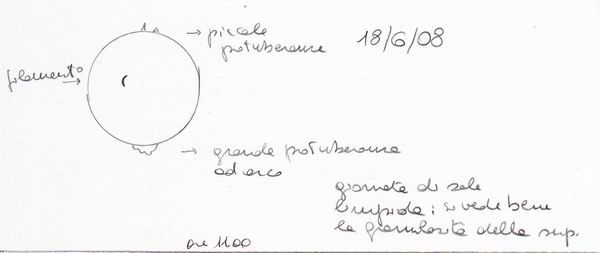 → piccole
potuberanze
18/6/08
filamento →
→ grande potuberanza
ad arco
giornata di sole
limpida; si vede bene
la granulosità della sup.
ore 1100